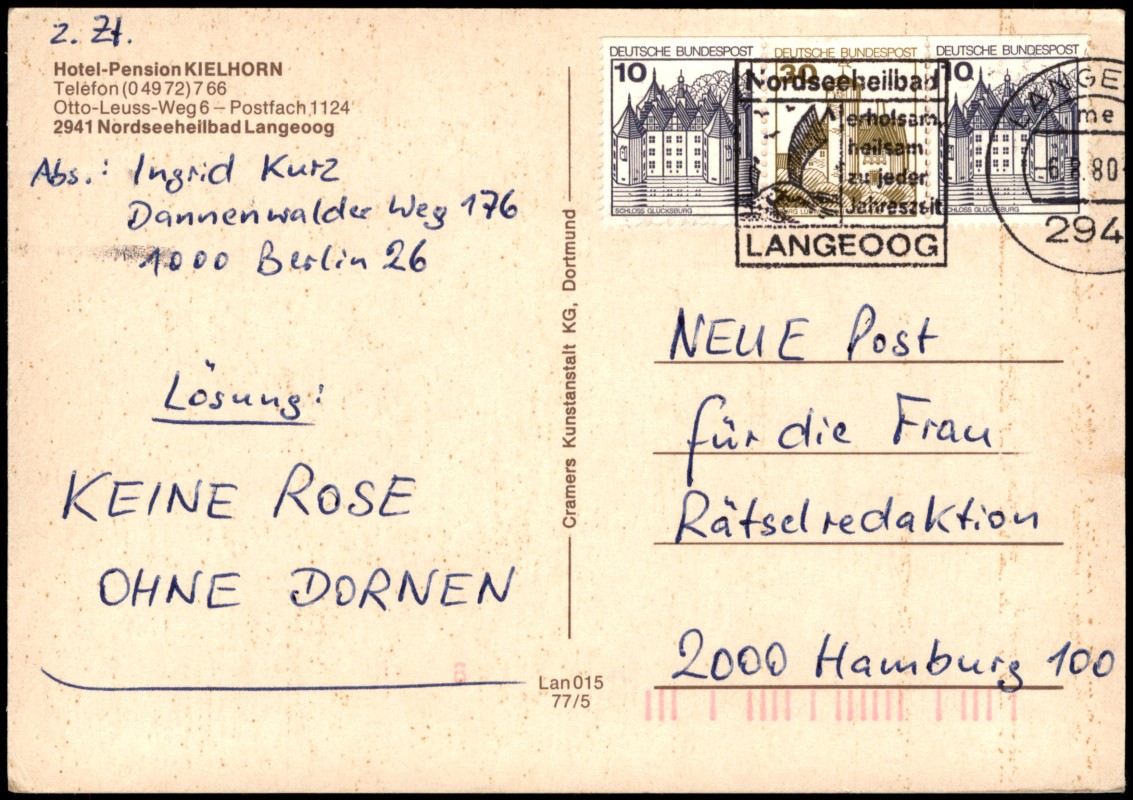 z. Zt.
Hotel-Pension KIELHORN
Telefon (0 49 72) 7 66
Otto-Leuss-Weg 6 – Postfach 1124
2941 Nordseeheilbad Langeoog
Abs.: Ingrid Kurz
Dannenwalder Weg 176
1000 Berlin 26
Lösung:
KEINE ROSE
OHNE DORNEN
Cramers Kunstanstalt KG, Dortmund
Lan 015
77/5
DEUTSCHE BUNDESPOST
10
SCHLOSS GLÜCKSBURG
DEUTSCHE BUNDESPOST
30
DEUTSCHE BUNDESPOST
10
SCHLOSS GLÜCKSBURG
Nordseeheilbad
erholsam,
heilsam
zu jeder
Jahreszeit
LANGEOOG
LANGE
80
294
NEUE Post
für die Frau
Rätselredaktion
2000 Hamburg 100